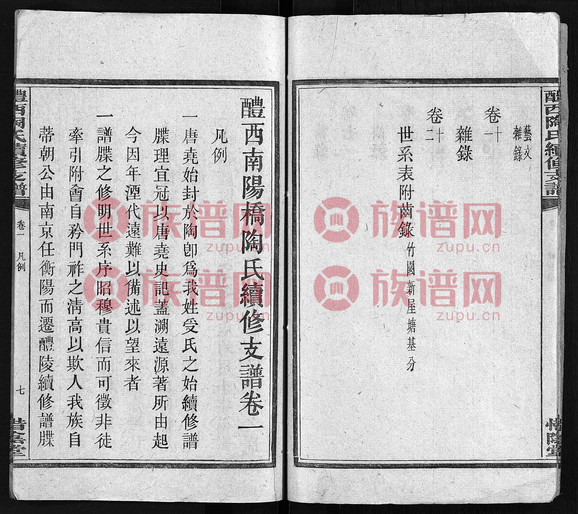 醴西陶氏續修支譜
惜陰堂
藝文
雜錄
卷十一
雜錄
卷十二
世系表附齒錄 竹園新屋塘基分
醴西南陽橋陶氏續修支譜卷一
凡例
一唐堯始封於陶卽爲我姓受氏之始續修譜
牒理宜冠以唐堯史記蓋溯遠源著所由起
今因年湮代遠難以備述以望來者
一譜牒之修明世系序昭穆貴信而可徵非徒
牽引附會自矜門祚之清高以欺人我族自
蒂朝公由南京任衡陽而遷醴陵續修譜牒
醴西陶氏續修支譜
卷一 凡例
七
惜陰堂
族谱网
zupu.cn
族谱网
zupu.cn
族谱网
zupu.cn
族谱网
zupu.cn